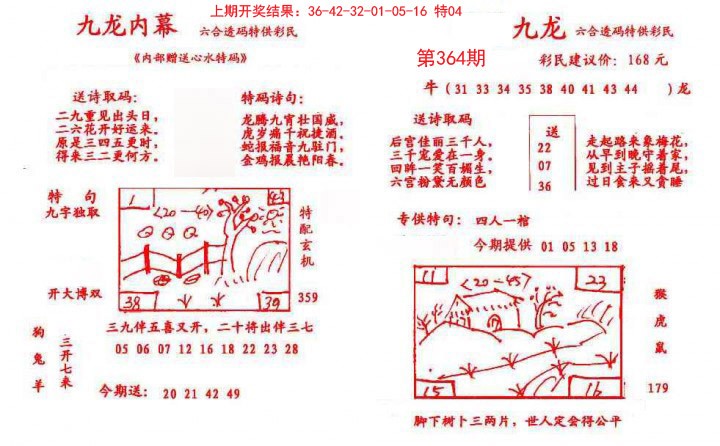 上期开奖结果：36-42-32-01-05-16 特04
九龙内幕 六合透码特供彩民
《内部赠送心水特码》
送诗取码：
二九重见出头日，
二六花开好运来。
原是三四五更时，
得来三二更何方。
特码诗句：
龙腾九宵壮国威，
虎岁痛千祝捷酒。
蛇报福音九驻门，
金鸡报晨艳阳春。
特句
九字独取
开大博双
1
43
<20-40>
38
39
特配玄机
359
三九伴五喜又开，二十将出伴三七
05 06 07 12 16 18 22 23 28
狗兔羊
三开七来
今期送：20 21 42 49
九龙 六合透码特供彩民
第364期
彩民建议价：168元
牛（31 33 34 35 38 40 41 43 44 ）龙
送诗取码
后宫佳丽三千人，
三千宠爱在一身。
回眸一笑百媚生，
六宫粉黛无颜色
送
22
07
36
走起路来象梅花，
从早到晚守着家，
见到主子摇着尾，
过日食来又贪睡
专供特句：四人一棺
今期提供 01 05 13 18
11
23
<20-45>
15
16
猴虎鼠
179
脚下树卜三两片，世人定会得公平